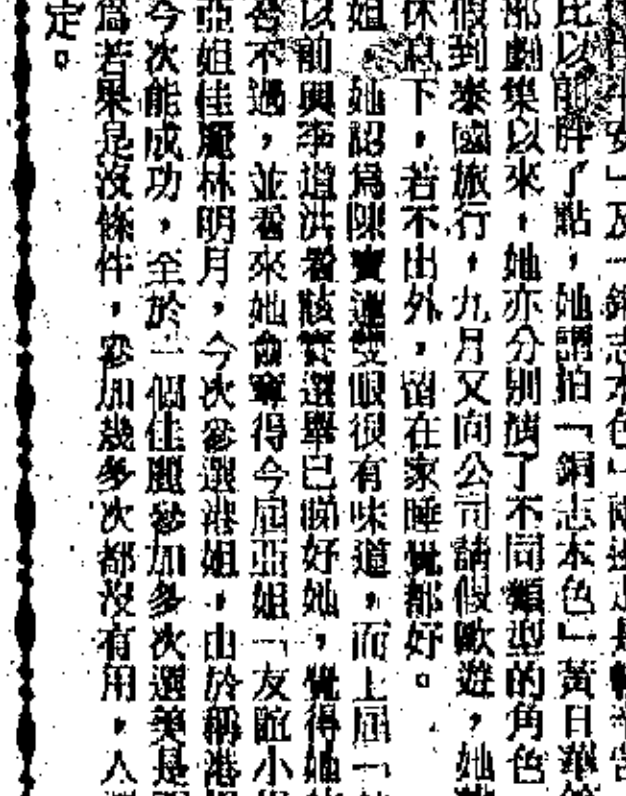 安」及「銅志本色」兩
比以前胖了點，她謂拍「銅志本色」黃日華
部劇集以來，她亦分別演了不同類型的角色
假到泰國旅行，九月又向公司請假歐遊，她
休息下，若不出外，留在家睡覺都好。
姐，她認為陳寶蓮雙眼很有味道，而上屆一
以前與李道洪看該賽選舉已睇好她，覺得她
答不過，並看來她會奪得今屆亞姐「友誼小
亞姐佳麗林明月，今次參選港姐，由於稱港
今次能成功，至於一個佳麗參加多次選美是
為若果是沒條件，參加幾多次都沒有用，人
定。